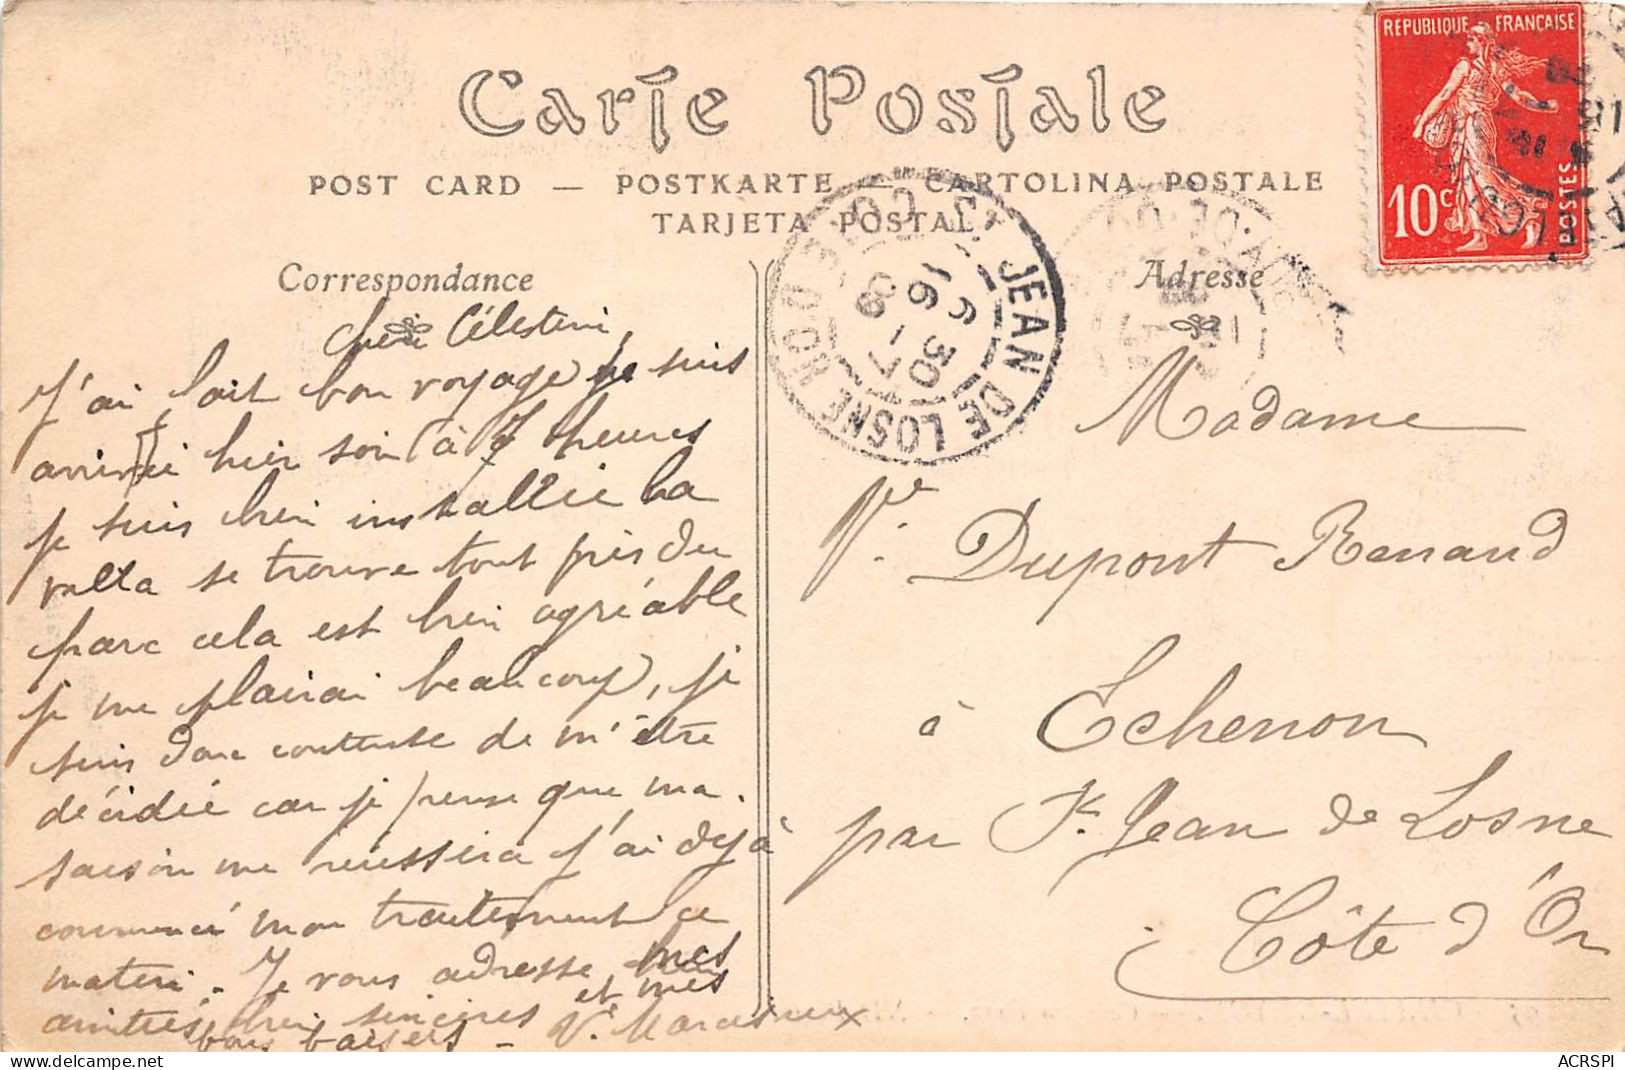 Carte Postale
POST CARD — POSTKARTE — CARTOLINA POSTALE
TARJETA POSTAL
Correspondance
Adresse
RÉPUBLIQUE FRANÇAISE
10c
POSTES
ST JEAN DE LOSNE CÔTE D'OR
16 30
6 - 7
09
Chère Célestine,
J'ai fait bon voyage je suis
arrivée hier soir à 7 heures
je suis bien installée la
villa se trouve tout près du
parc cela est bien agréable
je me plairai beaucoup, je
suis donc contente de m'être
décidée car je pense que ma
saison me réussira j'ai déjà
commencé mon traitement ce
matin. Je vous adresse mes
amitiés bien sincères et mes
bons baisers - Ve
Madame
Ve Dupont Renaud
à Echenon
par St Jean de Losne
Côte d'Or
ACRSPI